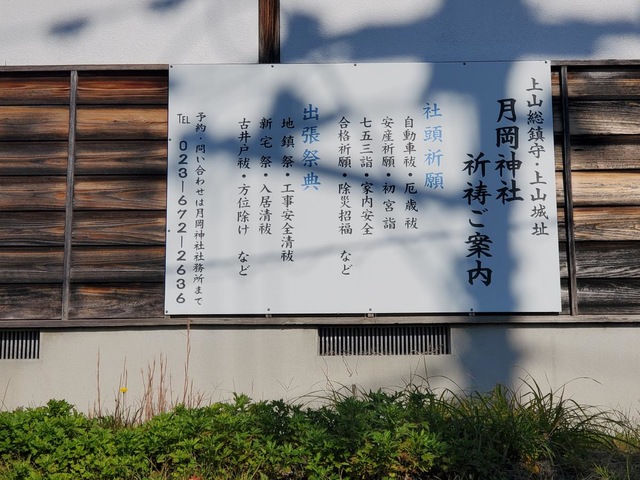 上山総鎮守・上山城址
月岡神社
祈祷ご案内
社頭祈願
自動車祓・厄歳祓
安産祈願・初宮詣
七五三詣・家内安全
合格祈願・除災招福 など
出張祭典
地鎮祭・工事安全清祓
新宅祭・入居清祓
古井戸祓・方位除け など
予約・問い合わせは月岡神社社務所まで
TEL 023―672―2636